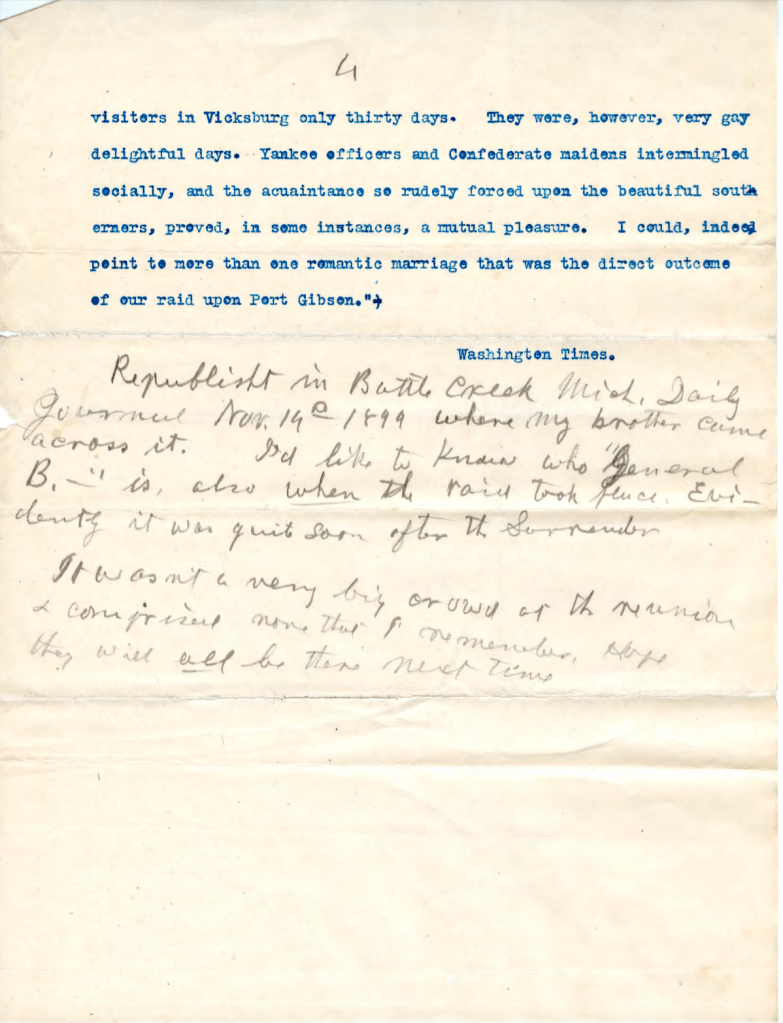 4
visiters in Vicksburg only thirty days. They were, however, very gay
delightful days. Yankee officers and Confederate maidens intermingled
socially, and the acuaintance so rudely forced upon the beautiful south
erners, proved, in some instances, a mutual pleasure. I could, indeed
point to more than one romantic marriage that was the direct outcome
of our raid upon Port Gibson."
Washington Times.
Republisht in Battle Creek Mich. Daily
Journal Nov. 14 1899 where my brother came
across it. I'd like to know who "General
B.—" is, also when the raid took place. Evi-
dently it was quit soon after th Surrender
It wasn't a very big crowd at th reunion
& comprised none that I remember. Hope
they will all be there next time